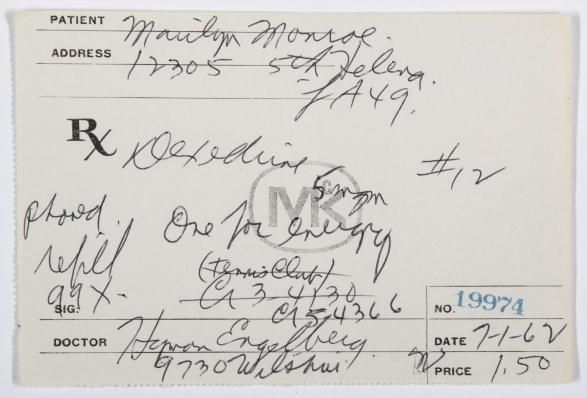 PATIENT Marilyn Monroe.
ADDRESS 12305 5th Helena.
LA 49.
Rx Dexedrine #12
5 mgm
McK
phoned. One for energy
refill (Tennis Club)
99X- Cr 3-4130
SIG: Cr 54366
NO. 19974
DOCTOR Hyman Engelberg.
9730 Wilshire
DATE 7-1-62
PRICE 1.50